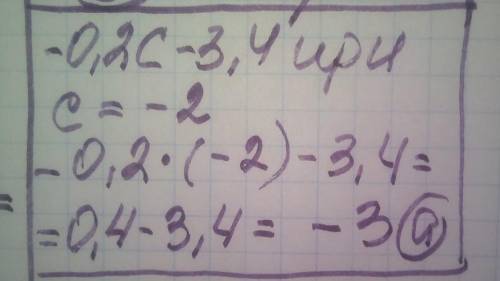 -0,2c-3,4 при
c = -2
-0,2·(-2)-3,4=
=0,4-3,4= -3 а